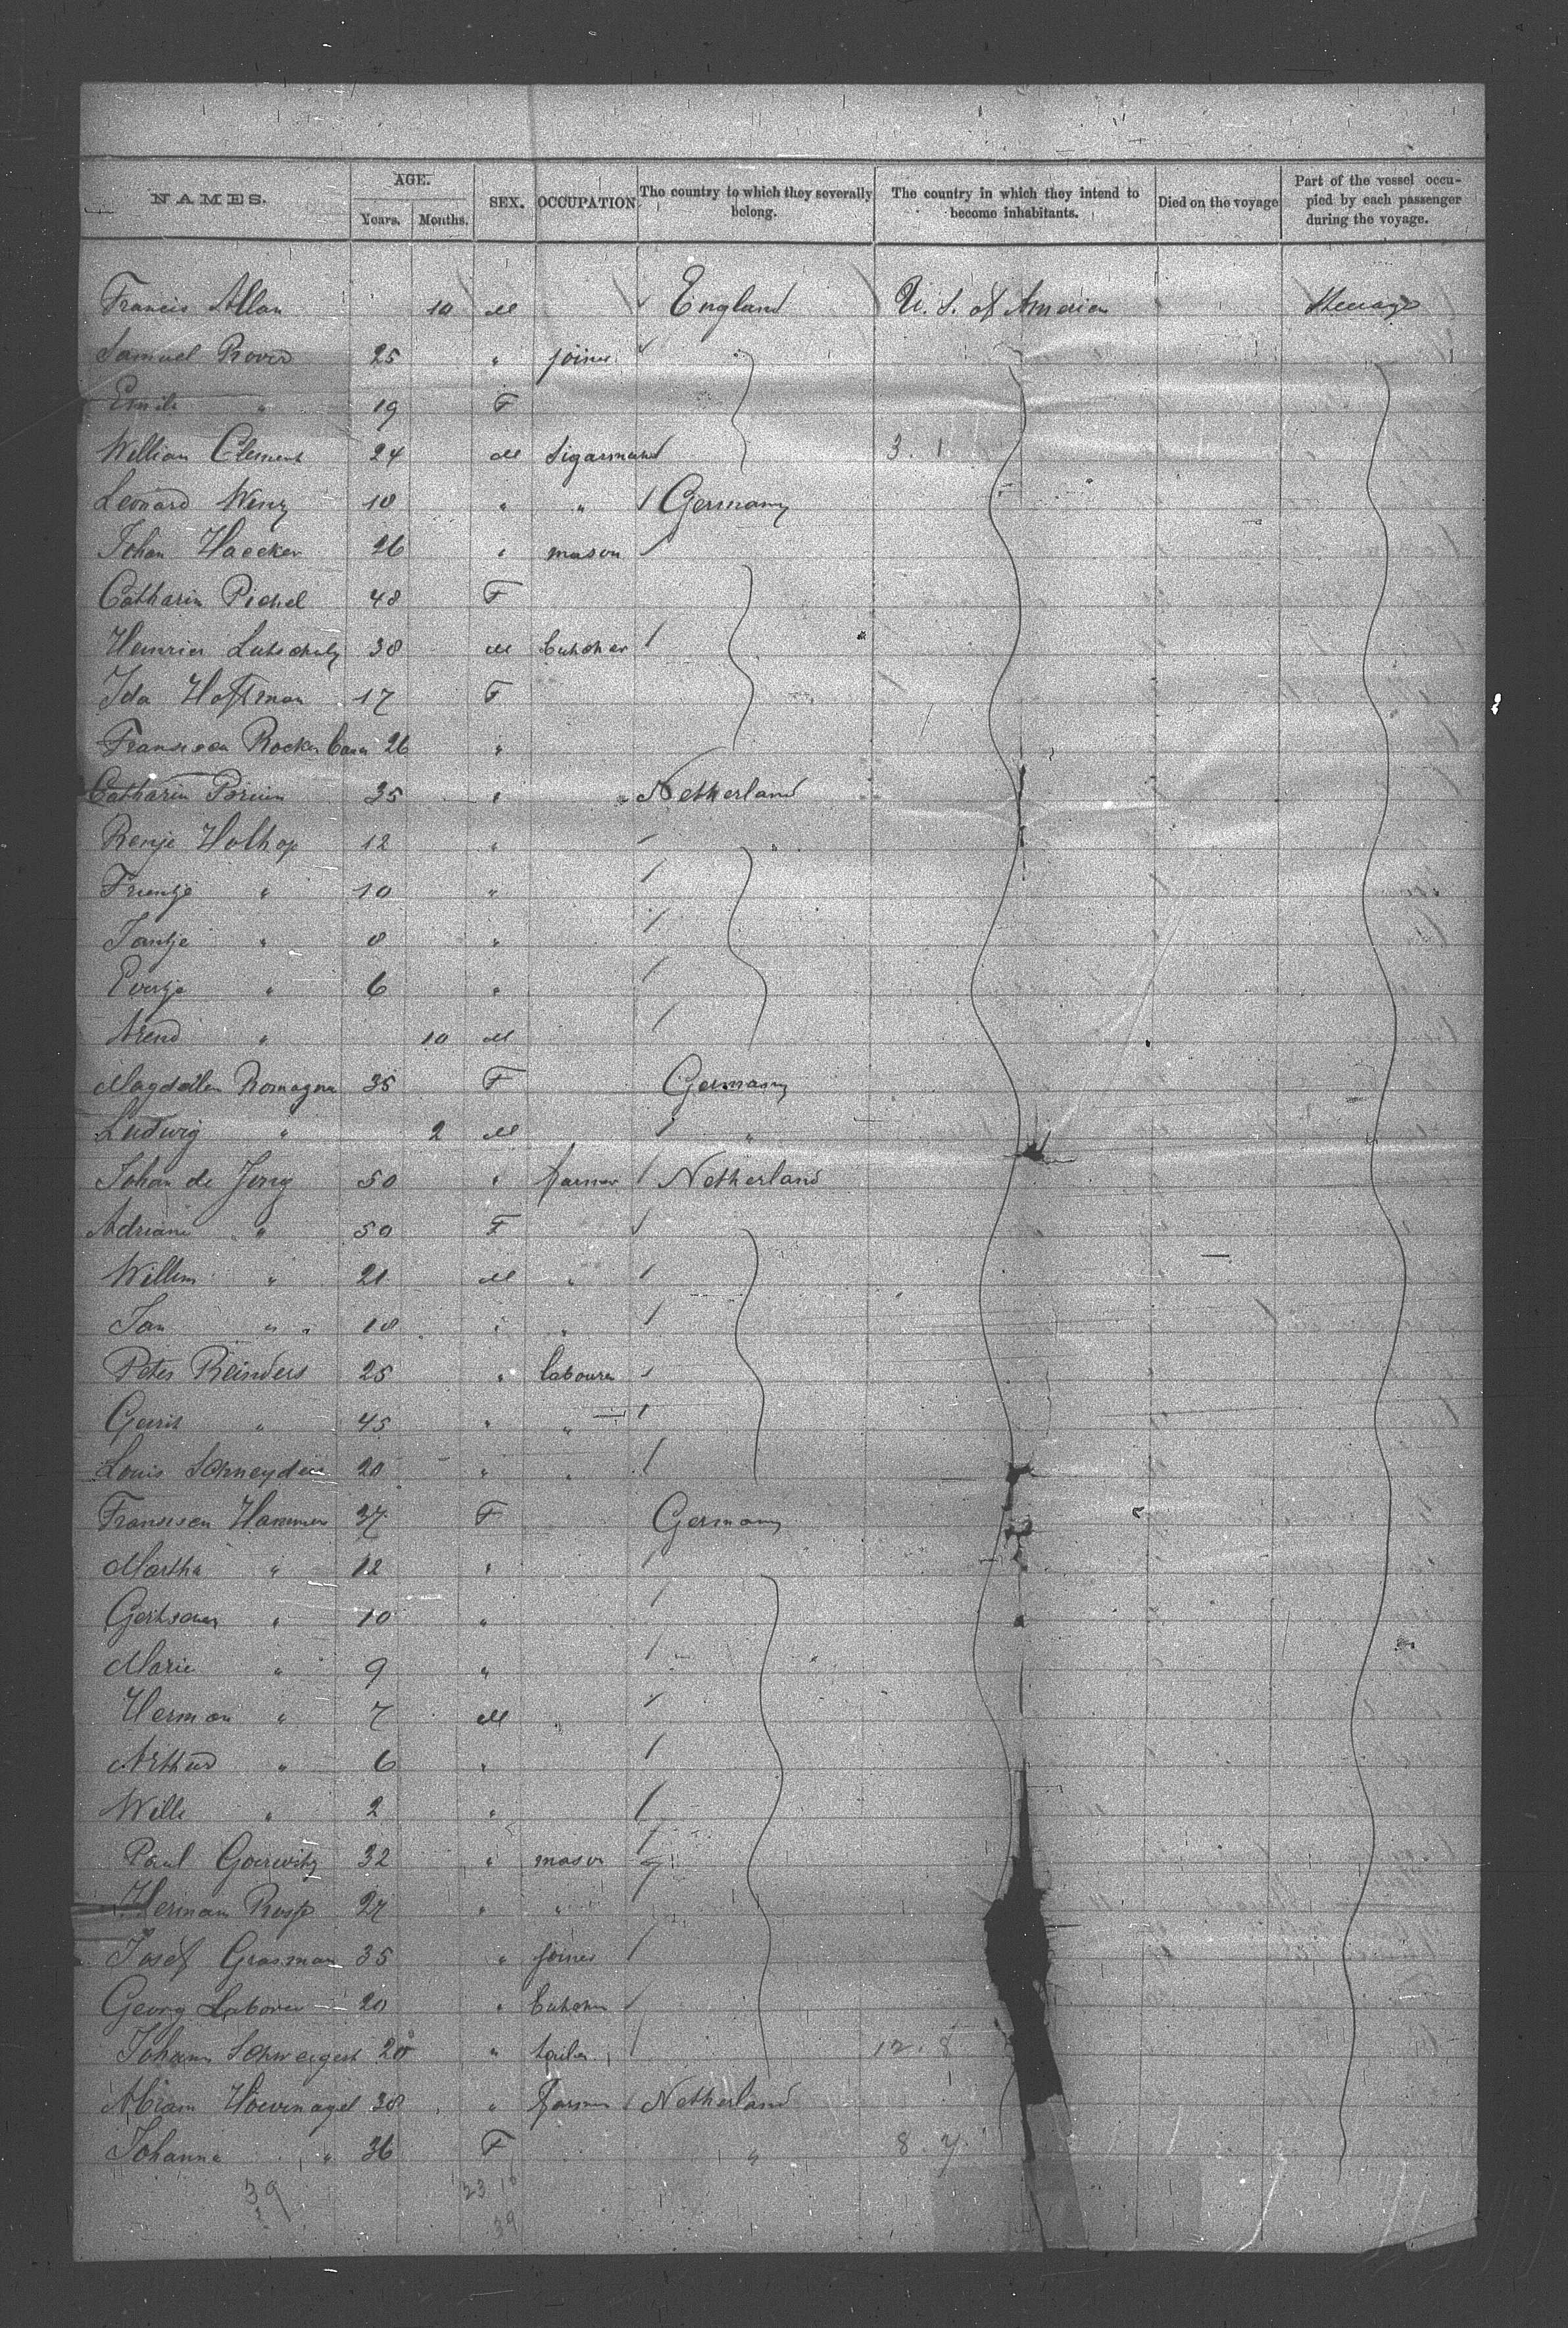 NAMES. AGE. Years. Months. SEX. OCCUPATION. The country to which they severally belong. The country in which they intend to become inhabitants. Died on the voyage Part of the vessel occupied by each passenger during the voyage.
Francis Allan 10 M England U. S. of America Steerage
Samuel 25 " joiner
" 19 F
William Clement 24 M Sigarmaker 3. 1
Leonard Wenz 18 " " Germany
Johan Haecker 26 " mason
Catharin Pichel 48 F
38 M butcher
Ida Hoffman 17 F
26 "
Catharin 35 " Netherland
Renje Holthop 12 " "
" 10 "
Jantje " 8 "
Evertje " 6 "
Arend " 10 M
Magdalen Romagna 35 F Germany
Ludwig " 2 M "
Johan de Jong 50 " farmer Netherland
Adriana " 50 F
Willem " 21 M "
Jan " 18 " "
Peter Reinders 25 " labourer
Gerrit " 45 " "
Louis Schneyder 20 " "
Hammer 37 F Germany
Martha " 12 "
" 10 "
Marie " 9 " "
Herman " 7 M
Arthur " 6 "
Willi " 2 "
Paul 32 " mason
Herman 27 " "
Josef Grasman 35 " joiner
Georg 20 " butcher
Johann Schweigert 28 " tailer 12. 8
38 " farmer Netherland
Johanna " 36 F " 8. 7
39 23 16
39